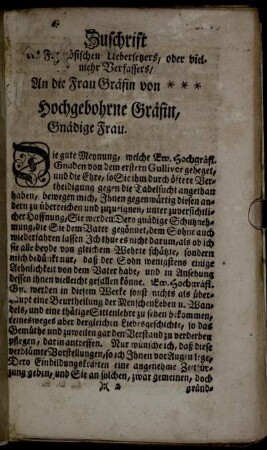 Zuschrift
Frantzösischen Uebersetzers, oder viel-
mehr Verfassers/
An die Frau Gräfin von * * *
Hochgebohrne Gräfin,
Gnädige Frau.
Die gute Meynung, welche Ew. Hochgräfl.
Gnaden von dem erstern Gulliver geheget,
und die Ehre, so Sie ihm durch öftere Ver-
theidigung gegen die Tadelsucht angethan
haben, bewegen mich, Ihnen gegenwärtig diesen an-
dern zu überreichen und zuzueignen, unter zuversichtli-
cher Hoffnung, Sie werden Dero gnädige Schutzneh-
mung, die Sie dem Vater gegönnet, dem Sohne auch
wiederfahren lassen Ich thue es nicht darum, als ob ich
sie alle beyde von gleichem Wehrte schätzte, sondern
mich bedünkt nur, daß der Sohn wenigstens einige
Aehnlichkeit von dem Vater habe, und in Ansehung
dessen ihnen vielleicht gefallen könne. Ew. Hochgräfl.
Gn. werden in diesem Werke sonst nichts als über-
haupt eine Beurtheilung der Menschenleben u. Wan-
dels, und eine thätige Sittenlehre zu sehen bekommen,
keinesweges aber dergleichen Liebesgeschichte, so das
Gemüthe und zuweilen gar den Verstand zu verderben
pflegen, darin antreffen. Nur wünsche ich, daß diese
verblümte Vorstellungen, so ich Ihnen vor Augen lege,
Dero Einbildungskräften eine angenehme Zeitkür-
zung geben, und Sie an solchen, zwar gemeinen, doch
gründ-